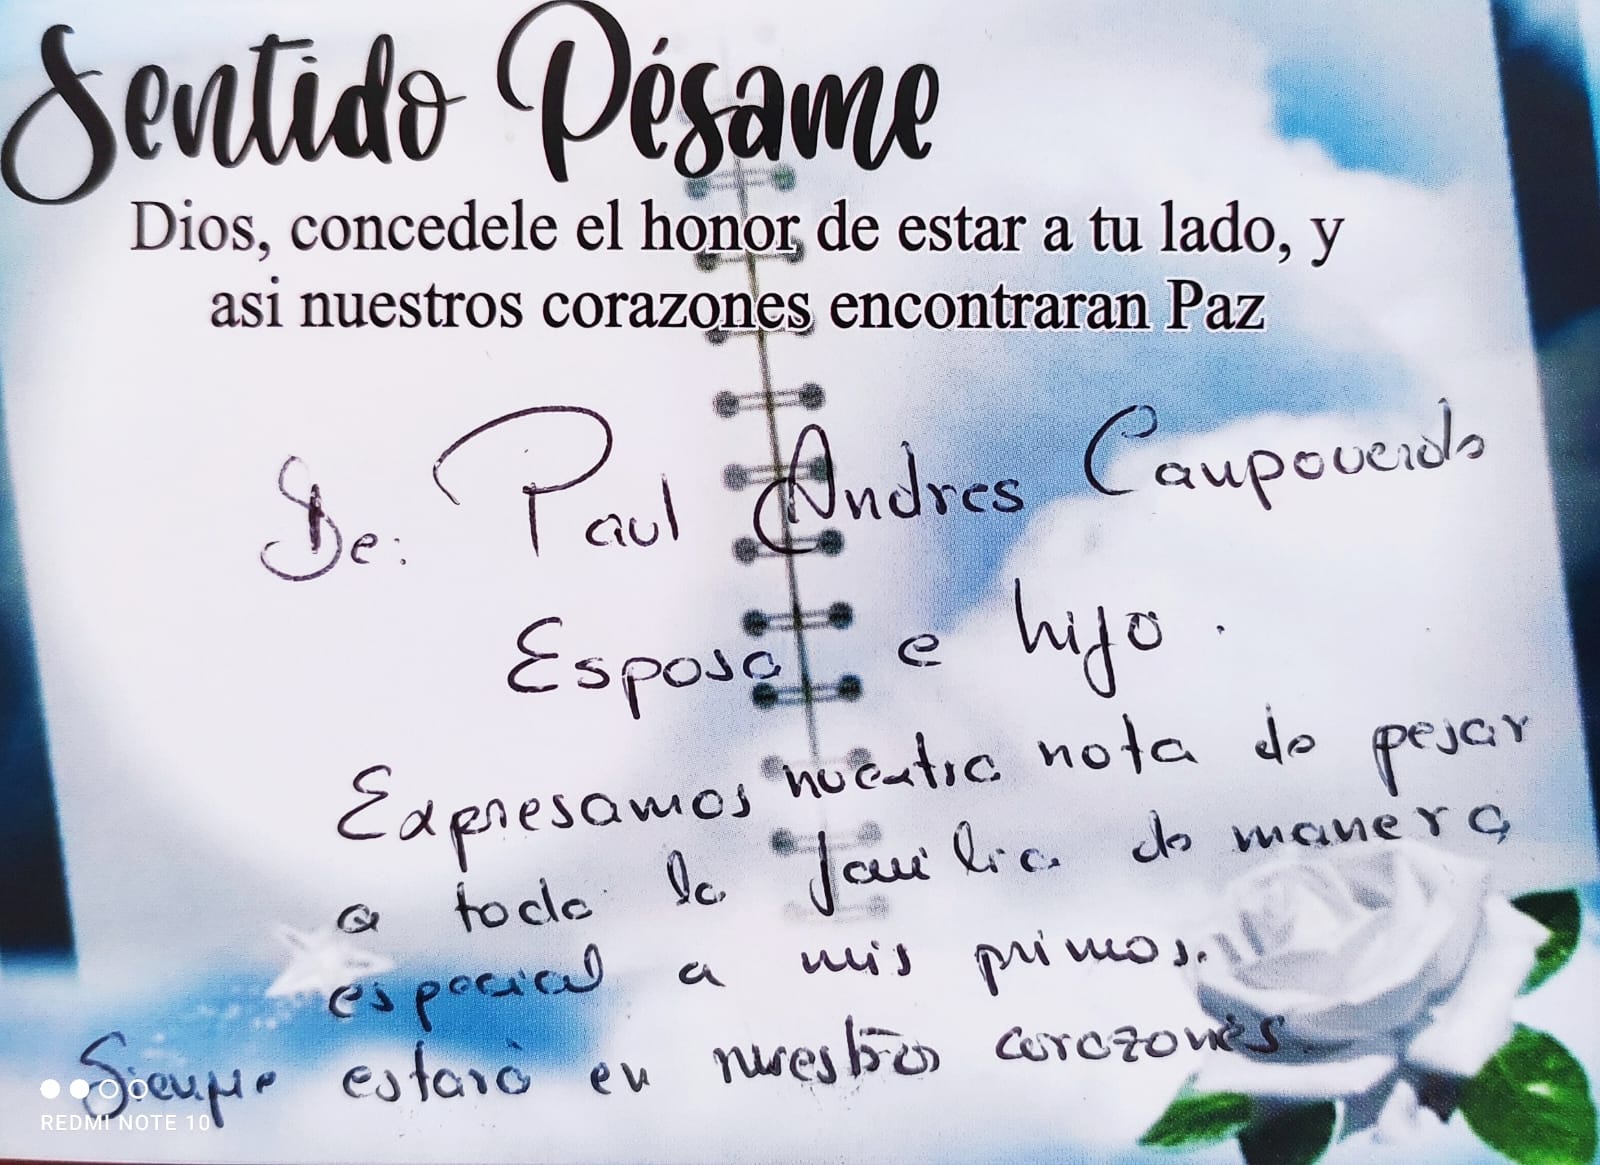 Sentido Pésame
Dios, concedele el honor de estar a tu lado, y
asi nuestros corazones encontraran Paz
De: Paul Andres Campoverde
Esposa e hijo.
Expresamos nuestra nota de pesar
a toda la familia de manera
especial a mis primos.
Siempre estará en nuestros corazones
REDMI NOTE 10